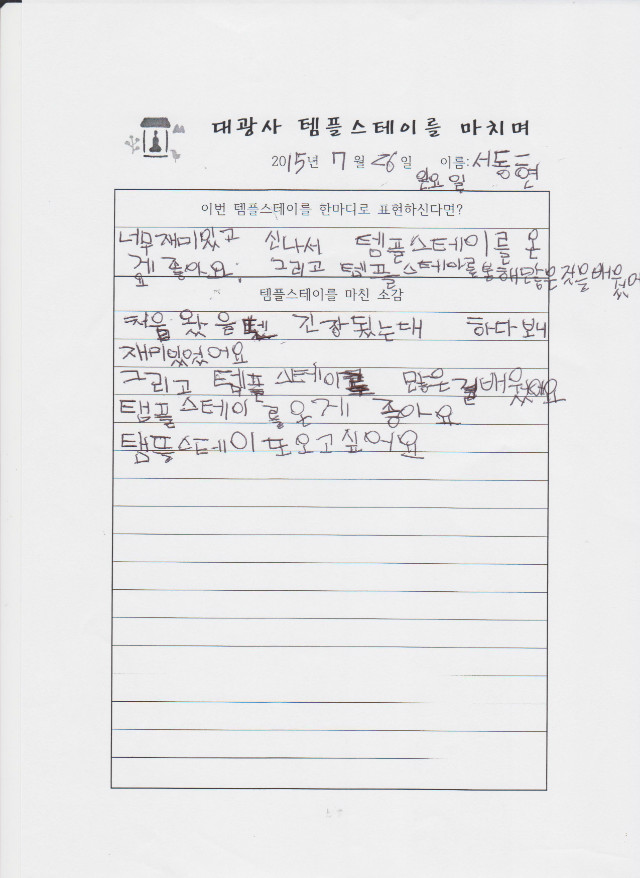 대광사 템플스테이를 마치며
2015년 7월 26일 이름: 서동현
일요일
이번 템플스테이를 한마디로 표현하신다면?
너무재미있고 신나서 템플스테이를 온
게 좋아요. 그리고 템플스테이를통해많은것을배웠어
요
템플스테이를 마친 소감
처음 왔을땐 긴장됬는대 하다보니
재미있었어요
그리고 템플스테이로 많은걸배웠어요
탬플스테이를온게 좋아요
탬플스테이또오고싶어요